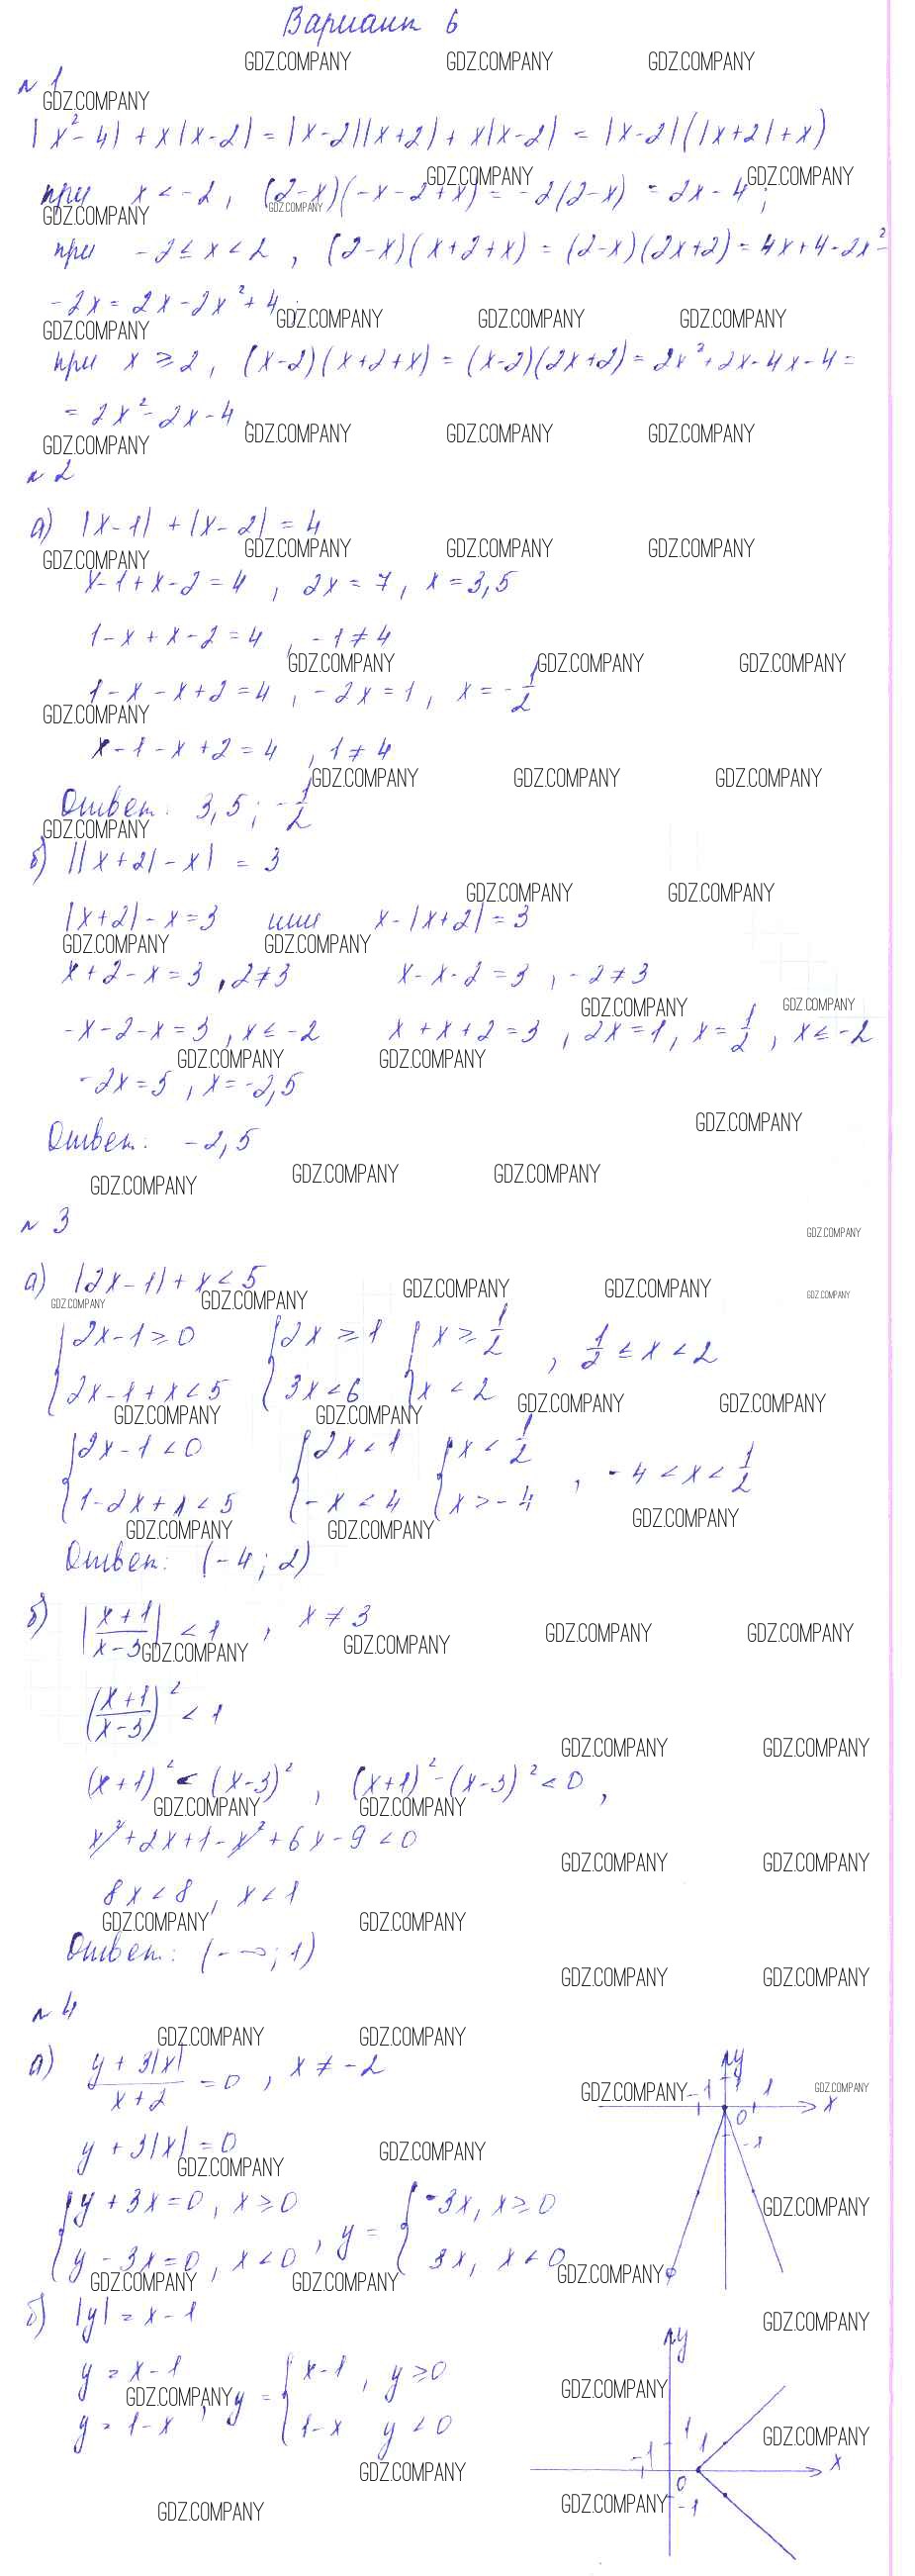 Вариант 6
GDZ.COMPANY GDZ.COMPANY GDZ.COMPANY
№ 1
GDZ.COMPANY
|x² - 4| + x|x - 2| = |x - 2||x + 2| + x|x - 2| = |x - 2|(|x + 2| + x)
GDZ.COMPANY GDZ.COMPANY
при x < -2, (2 - x)(-x - 2 + x) = -2(2 - x) = 2x - 4;
GDZ.COMPANY GDZ.COMPANY
при -2 ≤ x < 2, (2 - x)(x + 2 + x) = (2 - x)(2x + 2) = 4x + 4 - 2x² -
- 2x = 2x - 2x² + 4;
GDZ.COMPANY GDZ.COMPANY GDZ.COMPANY
GDZ.COMPANY
при x ≥ 2, (x - 2)(x + 2 + x) = (x - 2)(2x + 2) = 2x² + 2x - 4x - 4 =
= 2x² - 2x - 4.
GDZ.COMPANY GDZ.COMPANY GDZ.COMPANY
GDZ.COMPANY
№ 2
а) |x - 1| + |x - 2| = 4
GDZ.COMPANY GDZ.COMPANY GDZ.COMPANY
GDZ.COMPANY
x - 1 + x - 2 = 4, 2x = 7, x = 3,5
1 - x + x - 2 = 4, -1 ≠ 4
GDZ.COMPANY GDZ.COMPANY GDZ.COMPANY
1 - x - x + 2 = 4, -2x = 1, x = -1/2
GDZ.COMPANY
x - 1 - x + 2 = 4, 1 ≠ 4
GDZ.COMPANY GDZ.COMPANY GDZ.COMPANY
Ответ: 3,5; -1/2
GDZ.COMPANY
б) ||x + 2| - x| = 3
GDZ.COMPANY GDZ.COMPANY
|x + 2| - x = 3 или x - |x + 2| = 3
GDZ.COMPANY GDZ.COMPANY
x + 2 - x = 3, 2 ≠ 3 x - x - 2 = 3, -2 ≠ 3
GDZ.COMPANY GDZ.COMPANY
-x - 2 - x = 3, x ≤ -2 x + x + 2 = 3, 2x = 1, x = 1/2, x ≤ -2
GDZ.COMPANY GDZ.COMPANY
-2x = 5, x = -2,5
GDZ.COMPANY
Ответ: -2,5
GDZ.COMPANY GDZ.COMPANY GDZ.COMPANY
№ 3
GDZ.COMPANY
а) |2x - 1| + x < 5
GDZ.COMPANY GDZ.COMPANY GDZ.COMPANY
GDZ.COMPANY GDZ.COMPANY
{2x - 1 ≥ 0 {2x ≥ 1 {x ≥ 1/2, 1/2 ≤ x < 2
{2x - 1 + x < 5 {3x < 6 {x < 2
GDZ.COMPANY GDZ.COMPANY GDZ.COMPANY GDZ.COMPANY
{2x - 1 < 0 {2x < 1 {x < 1/2, -4 < x < 1/2
{1 - 2x + x < 5 {-x < 4 {x > -4
GDZ.COMPANY GDZ.COMPANY GDZ.COMPANY
Ответ: (-4; 2)
б) |(x + 1)/(x - 3)| < 1, x ≠ 3
GDZ.COMPANY GDZ.COMPANY GDZ.COMPANY GDZ.COMPANY
((x + 1)/(x - 3))² < 1
GDZ.COMPANY GDZ.COMPANY
(x + 1)² < (x - 3)², (x + 1)² - (x - 3)² < 0,
GDZ.COMPANY GDZ.COMPANY
x² + 2x + 1 - x² + 6x - 9 < 0
GDZ.COMPANY GDZ.COMPANY
8x < 8, x < 1
GDZ.COMPANY GDZ.COMPANY
Ответ: (-∞; 1)
GDZ.COMPANY GDZ.COMPANY
№ 4
GDZ.COMPANY GDZ.COMPANY
а) (y + 3|x|)/(x + 2) = 0, x ≠ -2
y
GDZ.COMPANY -1 1 1 GDZ.COMPANY
x
0
-1
y + 3|x| = 0
GDZ.COMPANY
GDZ.COMPANY
{y + 3x = 0, x ≥ 0 , y = {-3x, x ≥ 0
GDZ.COMPANY
{y - 3x = 0, x < 0 {3x, x < 0
GDZ.COMPANY GDZ.COMPANY GDZ.COMPANY
б) |y| = x - 1
GDZ.COMPANY
y
y = x - 1 , y = {x - 1, y ≥ 0
GDZ.COMPANY GDZ.COMPANY
y = 1 - x {1 - x y < 0
1 1 GDZ.COMPANY
-1 x
GDZ.COMPANY
0
-1
GDZ.COMPANY GDZ.COMPANY